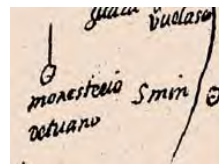 vuolaso
monesterio Smin
vetuano